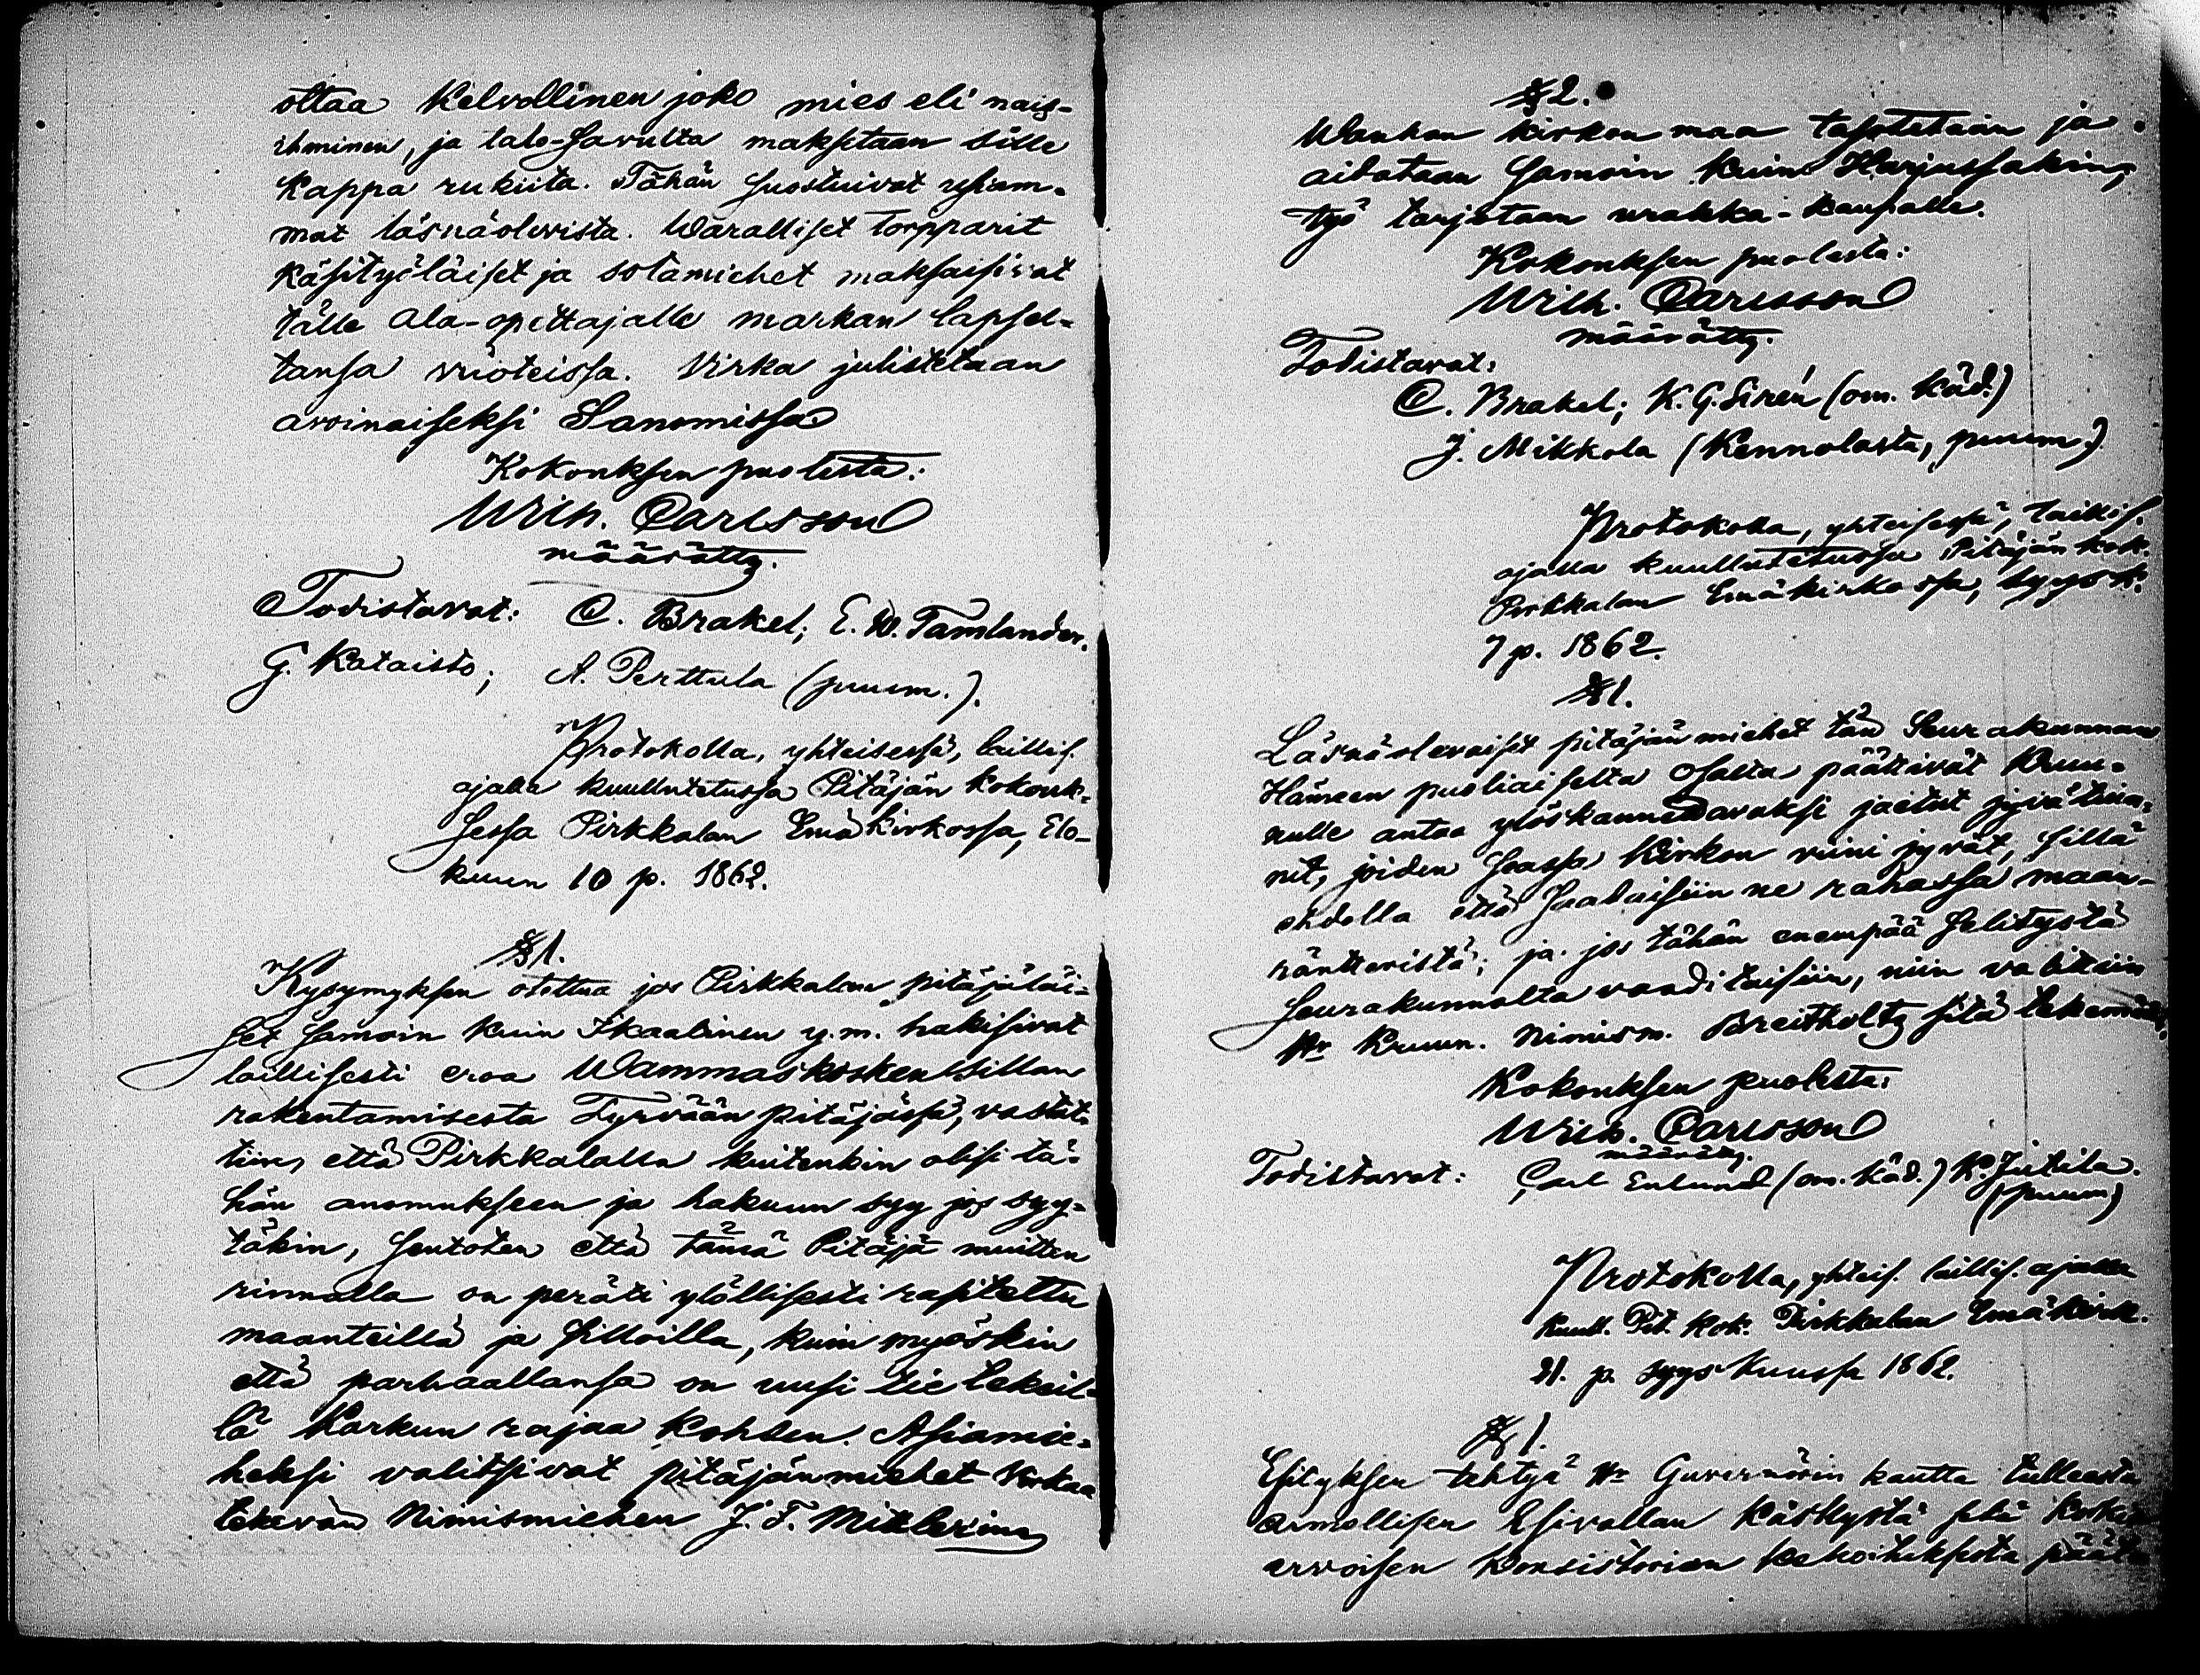 ottaa Kelvollinen joko mies eli nais-
ihminen, ja talo-savulta maksetaan sille
kappa rukiita. Tähän suostuivat useam-
mat läsnäolevista. Waralliset torpparit
Käsityöläiset ja sotamiehet maksaisivat
tälle ala-opettajalle markan lapsel-
tansa vuoteissa. Virka julistetaan
avoinaiseksi Sanomissa
Kokouksen puolesta:
Wilh. Carlsson
määrätty.
Todistavat: C. Brakel; E. W. Tamlander.
G. Kataisto; A. Perttula (puum.).
Protokolla, yhteisessä, laillis.
ajalla kuullutetussa Pitäjän kokouk-
sessa Pirkkalan Emäkirkossa, Elo-
kuun 10 p. 1862.
§ 1.
Kysymyksen otettua jos Pirkkalan pitäjäläi-
set samoin kuin Ikaalinen y.m. hakisivat
laillisesti eroa Wammaskosken sillan
rakentamisesta Tyrvään pitäjässä, vastat-
tiin, että Pirkkalalla kuitenkin olisi tä-
hän anomukseen ja hakuun syy jos syy-
täkin, sentöten että tämä Pitäjä muitten
rinnalla on peräti ylöllisesti rasitettu
maanteillä ja silloilla, kuin myöskin
että parhaallansa on uusi tie tekeil-
lä Karkun rajaa kohden. Asiamie-
heksi valitsivat pitäjänmiehet Virkaa
tekevän Nimismiehen J. F. Mittlerin
§ 2.
Wanhan kirkon maa tasotetaan ja
aidataan samoin kuin Harjussakin,
työ tarjotaan urakka-kaupalle.
Kokouksen puolesta:
Wilh. Carlsson
määrätty.
Todistavat:
C. Brakel; K. G. Sirén (om. käd.)
J. Mikkola (Kennolasta, puum.)
Protokolla, yhteisessä, laillis.
ajalla kuullutetussa Pitäjän kok.
Pirkkalan Emäkirkossa, syysk.
7 p. 1862.
§ 1.
Läsnäolevaiset pitäjänmiehet tän Seurakunnan
Hämeen puoliaiselta osalta päättivät Kruu-
nulle antaa ylöskannettavaksi jaetut jyvä
nit, joiden seassa Kirkon viini jyvät, sillä
ehdolla että saataisiin ne rahassa maan-
ränteristä; ja jos tähän enempää selitystä
seurakunnalta vaadittaisiin, niin valittiin
Hr Kruun. Nimism. Breitholtz sitä tekemään.
Kokouksen puolesta:
Wilh. Carlsson
määrätty.
Todistavat: Carl Enlund (om. käd.) K. Jutila.
(puum)
Protokolla, yhteis. laillis. ajalla
kuul. Pit. kok. Pirkkalan Emäkirk.
21. p. syyskuussa 1862.
§ 1.
Esityksen tehtyä Hr Guvernöörin kautta tulleesta
armollisen Esivallan käskystä sekä korkia
arvoisen Konsistorion päät